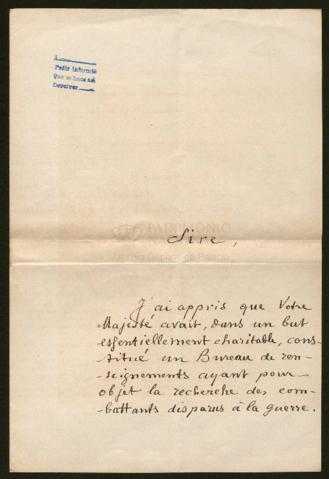 A
Pedir informe
Que se hace así
Devolver
PATRIMONIO
Sire,
J'ai appris que Votre
Majesté avait, dans un but
essentiellement charitable, cons-
-titué un Bureau de ren-
-seignements ayant pour
objet la recherche des com-
-battants disparus à la guerre.